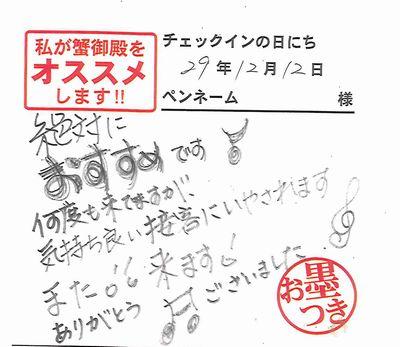 私が蟹御殿を
オススメ
します!!
チェックインの日にち
29年12月12日
ペンネーム 様
絶対に
おすすめです
何度も来てますが、
気持ち良い接客にいやされます
また 来ます
ありがとう ございました
お墨つき